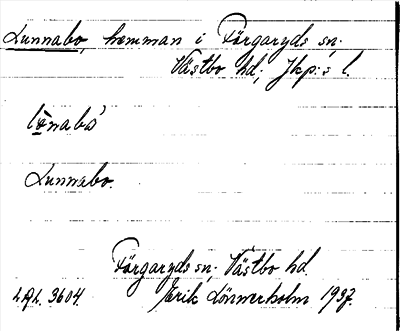 Lunnabo, hemman i Färgaryds sn.
Västbo hd; Jkp:s l.
Lunnabo.
Färgaryds sn. Västbo hd.
Lönnerholm 1937.